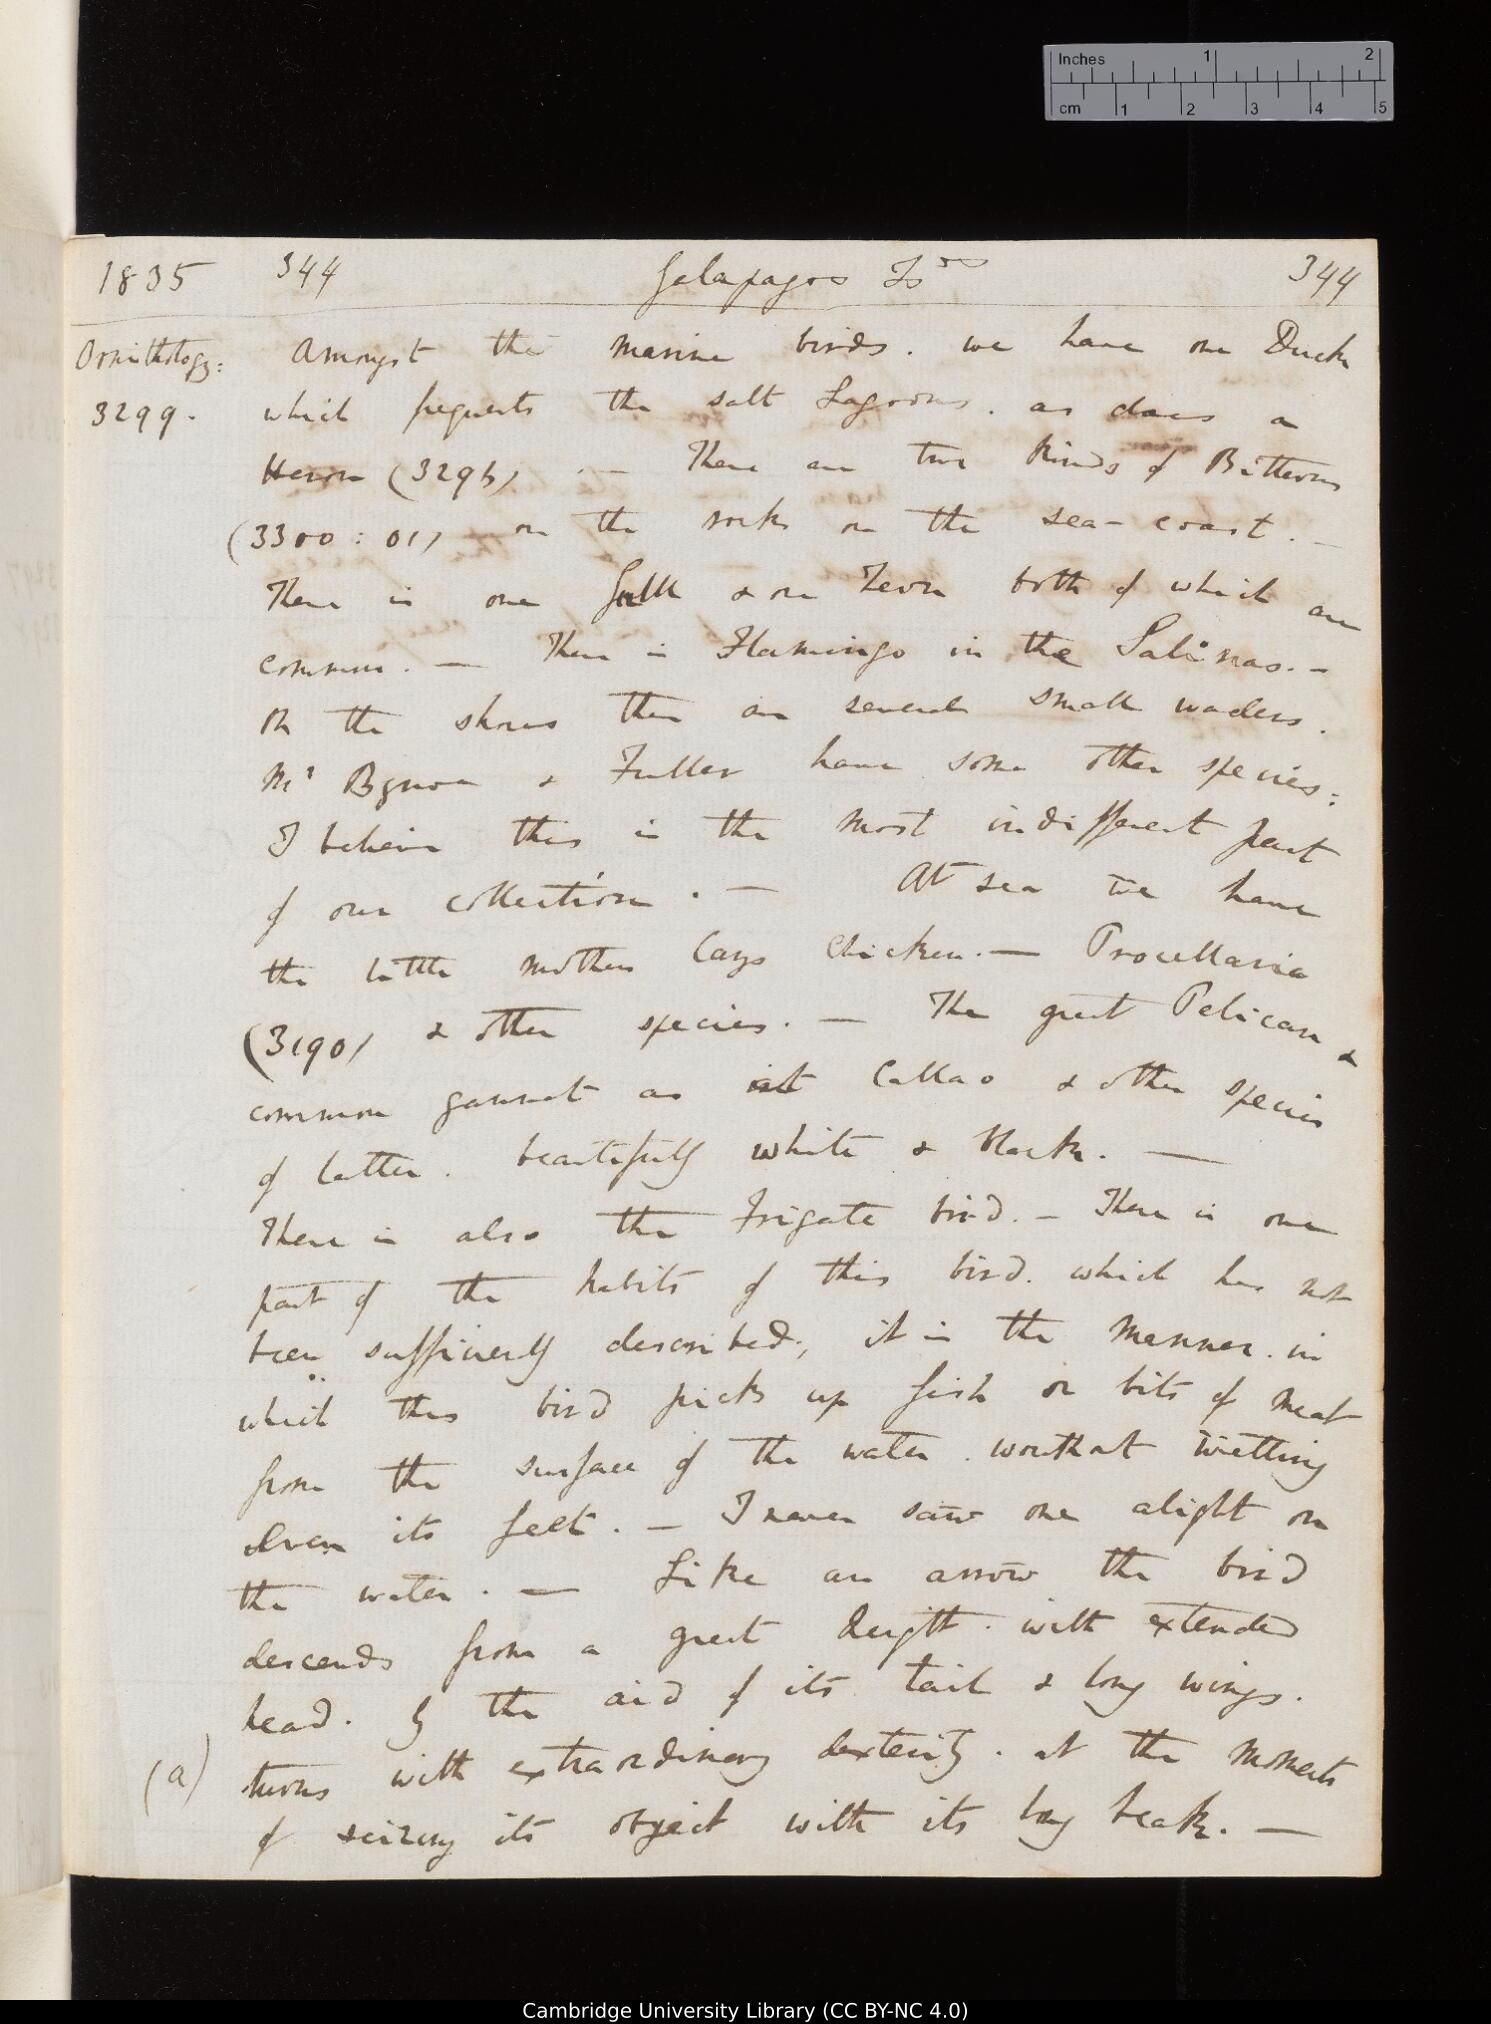 Inches 1 2
cm 1 2 3 4 5
1835 344 Galapagos Is^ds 344
Ornithology: Amongst the marine birds. we have one Duck
3299. which frequents the salt Lagoons. as does a
Heron (3296) . — There are two kinds of Bitterns
(3300 : 01) on the rocks on the sea-coast. —
There is one Gull & one Tern both of which are
common. — There is Flamingo in the Salinas. —
On the shores there are several small waders.
Mr Bynoe & Fuller have some other species:
I believe this is the most indifferent part
of our collection. — At sea we have
the little mother Carys Chicken. — Procellaria
(3190) & other species. — The great Pelican &
common gannet as at Callao & other species
of latter. beautifully white & black. —
There is also the Frigate bird. — There is one
part of the habits of this bird. which has not
been sufficiently described; it is the manner. in
which this bird picks up fish or bits of meat
from the surface of the water. without wetting
even its feet. — I never saw one alight on
the water. — Like an arrow the bird
descends from a great heigth. with extended
head. by the aid of its tail & long wings.
(a) turns with extraordinary dexterity. at the moment
of seizing its object with its long beak. —
Cambridge University Library (CC BY-NC 4.0)